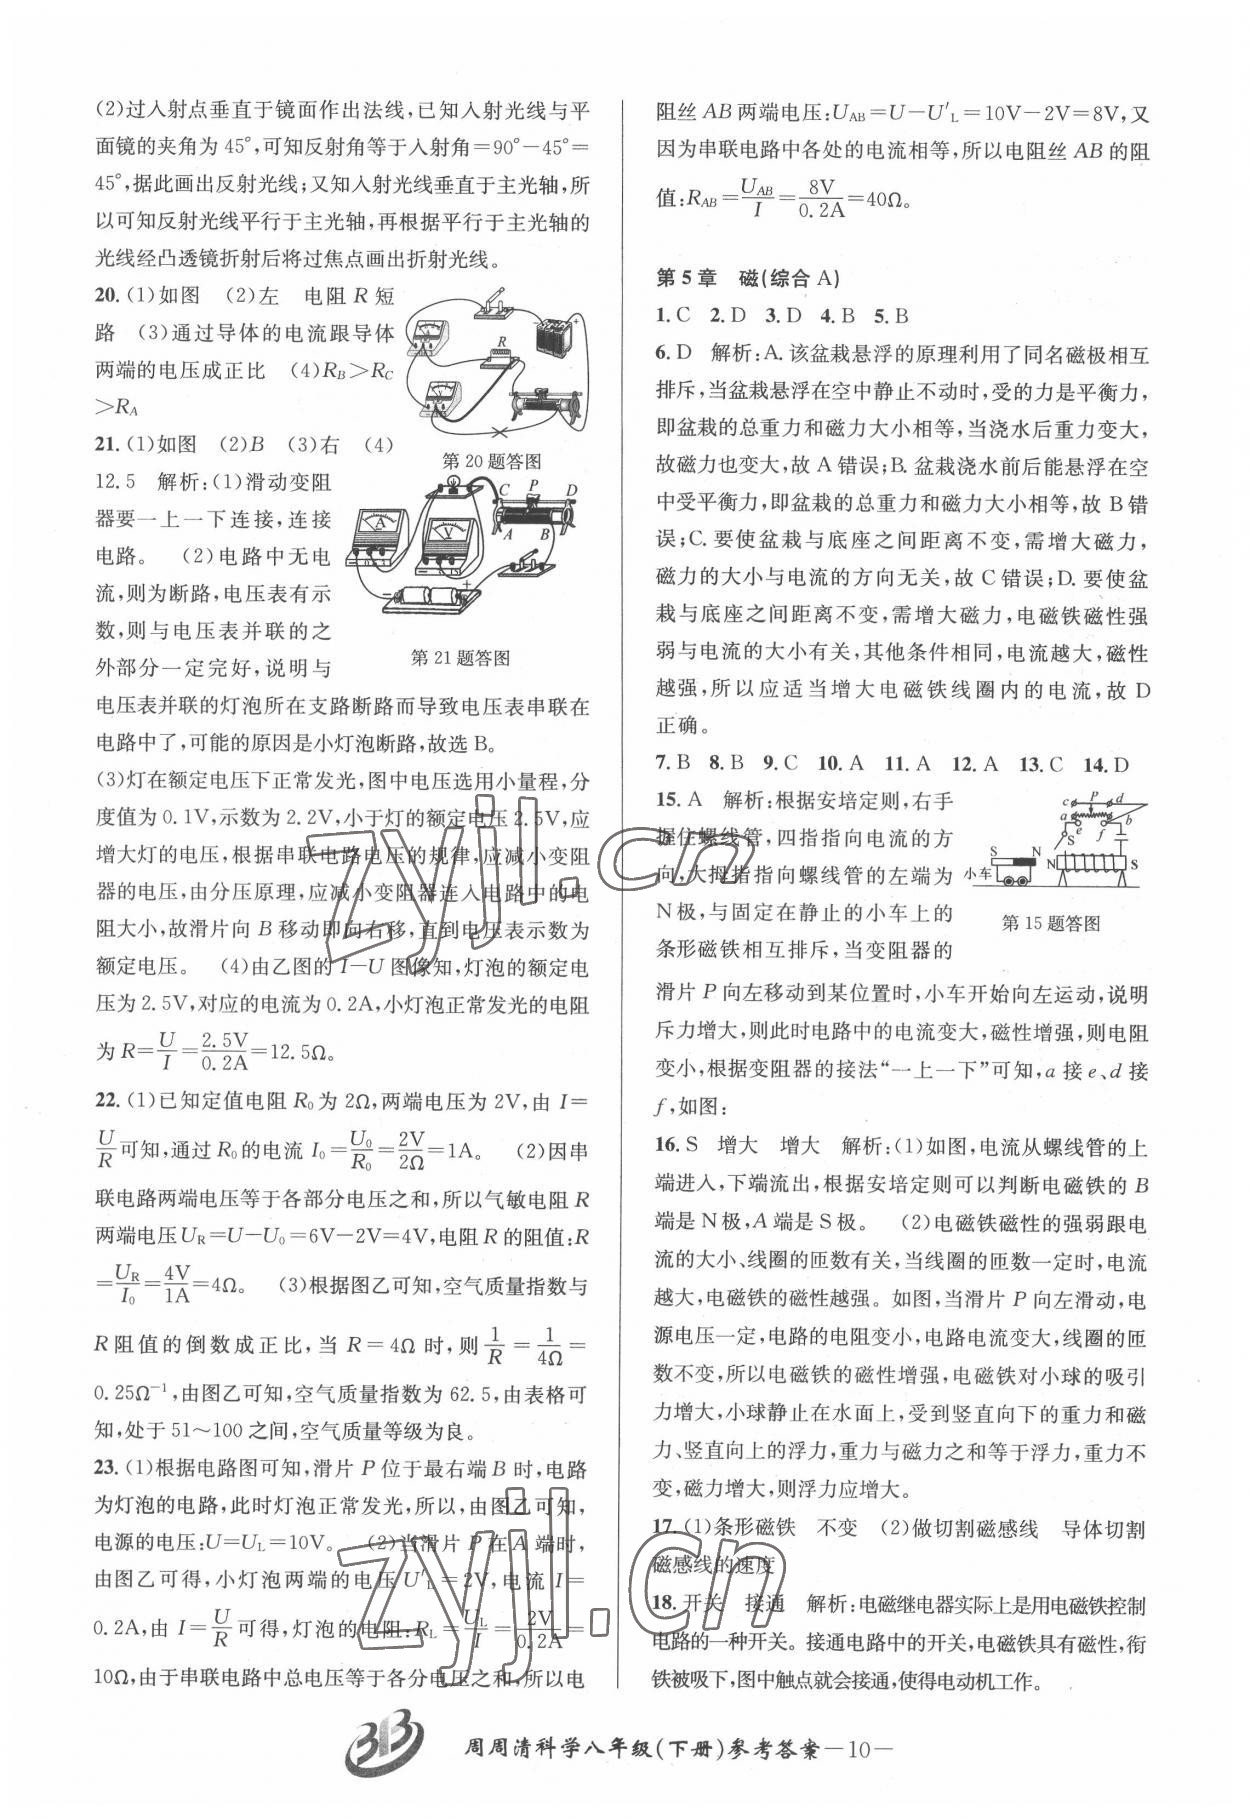 (2)过入射点垂直于镜面作出法线,已知入射光线与平
面镜的夹角为 45°,可知反射角等于入射角=90°-45°=
45°,据此画出反射光线;又知入射光线垂直于主光轴,所
以可知反射光线平行于主光轴,再根据平行于主光轴的
光线经凸透镜折射后将过焦点画出折射光线。
20. (1)如图 (2)左 电阻 R 短
路 (3)通过导体的电流跟导体
两端的电压成正比 (4)R_B>R_C
>R_A
第 20 题答图
21. (1)如图 (2)B (3)右 (4)
12.5 解析:(1)滑动变阻
器要一上一下连接,连接
电路。 (2)电路中无电
流,则为断路,电压表有示
数,则与电压表并联的之
外部分一定完好,说明与
第 21 题答图
电压表并联的灯泡所在支路断路而导致电压表串联在
电路中了,可能的原因是小灯泡断路,故选 B。
(3)灯在额定电压下正常发光,图中电压选用小量程,分
度值为 0.1V,示数为 2.2V,小于灯的额定电压 2.5V,应
增大灯的电压,根据串联电路电压的规律,应减小变阻
器的电压,由分压原理,应减小变阻器连入电路中的电
阻大小,故滑片向 B 移动即向右移,直到电压表示数为
额定电压。 (4)由乙图的 I-U 图像知,灯泡的额定电
压为 2.5V,对应的电流为 0.2A,小灯泡正常发光的电阻
为 R=U/I=2.5V/0.2A=12.5Ω。
22. (1)已知定值电阻 R₀为 2Ω,两端电压为 2V,由 I=
U/R可知,通过 R₀的电流 I₀=U₀/R₀=2V/2Ω=1A。 (2)因串
联电路两端电压等于各部分电压之和,所以气敏电阻 R
两端电压 U_R=U-U₀=6V-2V=4V,电阻 R 的阻值:R
=U_R/I₀=4V/1A=4Ω。 (3)根据图乙可知,空气质量指数与
R 阻值的倒数成正比,当 R=4Ω 时,则 1/R=1/4Ω=
0.25Ω⁻¹,由图乙可知,空气质量指数为 62.5,由表格可
知,处于 51~100 之间,空气质量等级为良。
23. (1)根据电路图可知,滑片 P 位于最右端 B 时,电路
为灯泡的电路,此时灯泡正常发光,所以,由图乙可知,
电源的电压:U=U_L=10V。 (2)当滑片 P 在 A 端时,
由图乙可得,小灯泡两端的电压 U′_L=2V,电流 I=
0.2A,由 I=U/R可得,灯泡的电阻:R_L=U_L/I=2V/0.2A=
10Ω,由于串联电路中总电压等于各分电压之和,所以电
阻丝 AB 两端电压:U_AB=U-U′_L=10V-2V=8V,又
因为串联电路中各处的电流相等,所以电阻丝 AB 的阻
值:R_AB=U_AB/I=8V/0.2A=40Ω。
第 5 章 磁(综合 A)
1. C 2. D 3. D 4. B 5. B
6. D 解析:A. 该盆栽悬浮的原理利用了同名磁极相互
排斥,当盆栽悬浮在空中静止不动时,受的力是平衡力,
即盆栽的总重力和磁力大小相等,当浇水后重力变大,
故磁力也变大,故 A 错误;B. 盆栽浇水前后能悬浮在空
中受平衡力,即盆栽的总重力和磁力大小相等,故 B 错
误;C. 要使盆栽与底座之间距离不变,需增大磁力,
磁力的大小与电流的方向无关,故 C 错误;D. 要使盆
栽与底座之间距离不变,需增大磁力,电磁铁磁性强
弱与电流的大小有关,其他条件相同,电流越大,磁性
越强,所以应适当增大电磁铁线圈内的电流,故 D
正确。
7. B 8. B 9. C 10. A 11. A 12. A 13. C 14. D
15. A 解析:根据安培定则,右手
握住螺线管,四指指向电流的方
向,大拇指指向螺线管的左端为
N 极,与固定在静止的小车上的
条形磁铁相互排斥,当变阻器的
小车
第 15 题答图
滑片 P 向左移动到某位置时,小车开始向左运动,说明
斥力增大,则此时电路中的电流变大,磁性增强,则电阻
变小,根据变阻器的接法“一上一下”可知,a 接 e、d 接
f,如图:
16. S 增大 增大 解析:(1)如图,电流从螺线管的上
端进入,下端流出,根据安培定则可以判断电磁铁的 B
端是 N 极,A 端是 S 极。 (2)电磁铁磁性的强弱跟电
流的大小、线圈的匝数有关,当线圈的匝数一定时,电流
越大,电磁铁的磁性越强。如图,当滑片 P 向左滑动,电
源电压一定,电路的电阻变小,电路电流变大,线圈的匝
数不变,所以电磁铁的磁性增强,电磁铁对小球的吸引
力增大,小球静止在水面上,受到竖直向下的重力和磁
力、竖直向上的浮力,重力与磁力之和等于浮力,重力不
变,磁力增大,则浮力应增大。
17. (1)条形磁铁 不变 (2)做切割磁感线 导体切割
磁感线的速度
18. 开关 接通 解析:电磁继电器实际上是用电磁铁控制
电路的一种开关。接通电路中的开关,电磁铁具有磁性,衔
铁被吸下,图中触点就会接通,使得电动机工作。
周周清科学八年级(下册)参考答案—10—
zyjl.cn
zyjl.cn